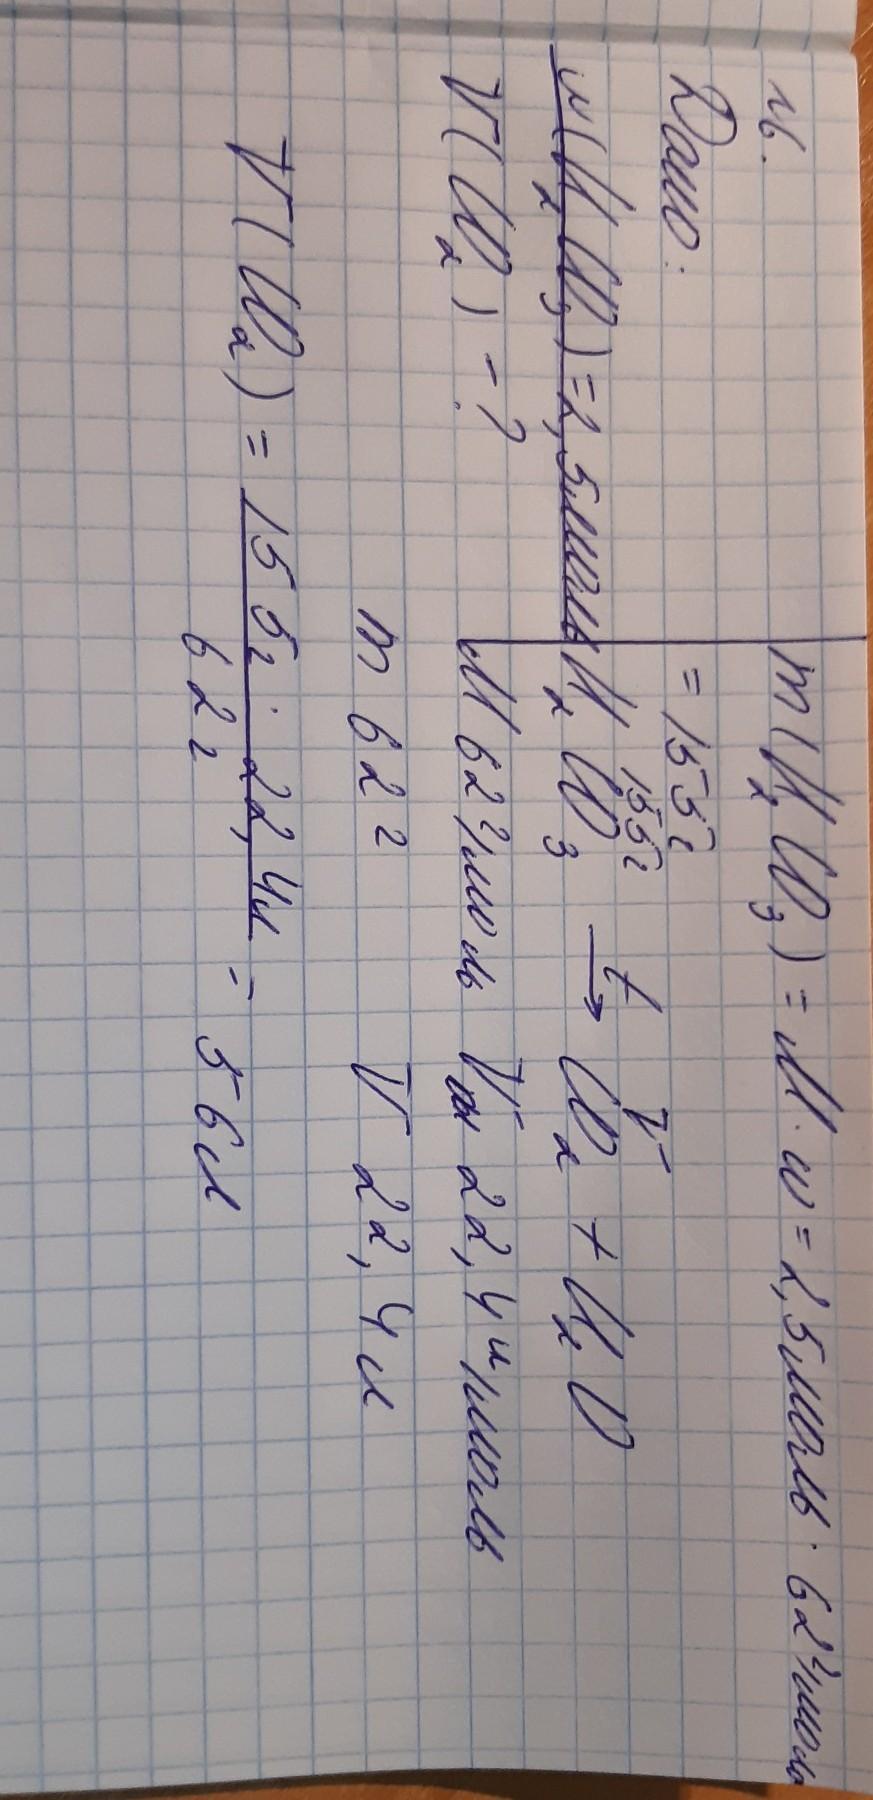 16.
Дано:
n(H2CO3) = 2,5моль
V(CO2) - ?
m(H2CO3) = M · n = 2,5моль · 62г/моль
= 155г
155г t V
H2CO3 → CO2 + H2O
M 62г/моль Vm 22,4л/моль
m 62г V 22,4л
V(CO2) = 155г · 22,4л = 56л
62г